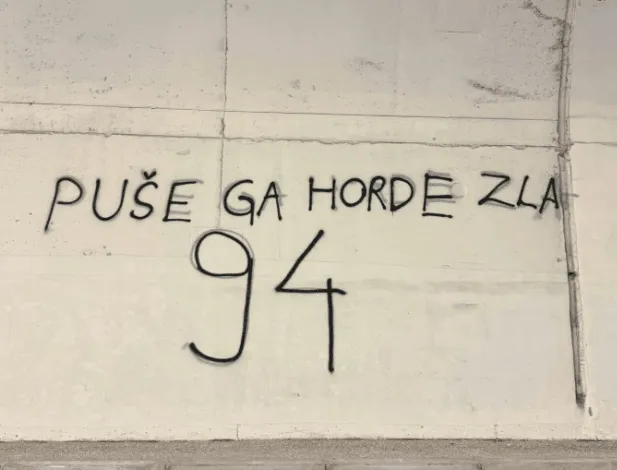 PUŠE GA HORDE ZLA
94